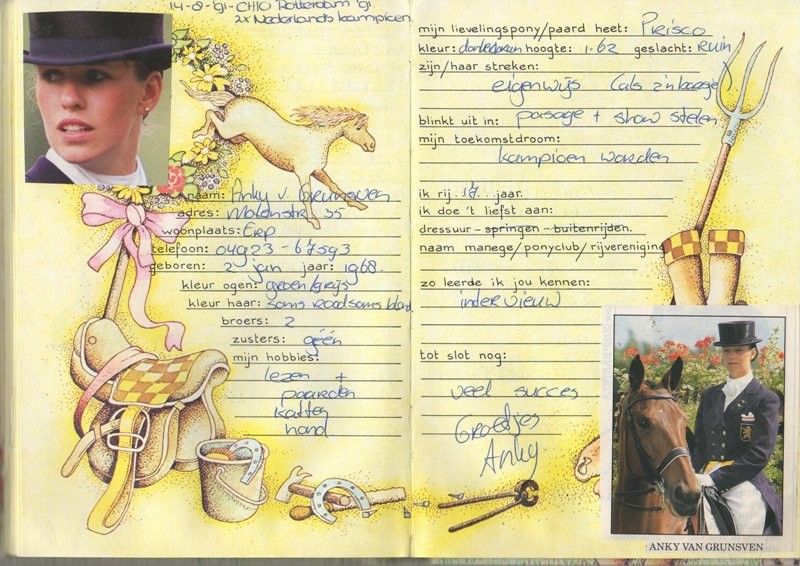 14-8-'91 - CHIO Rotterdam '91
2x Nederlands kampioen
naam: Anky v. Grunsven
adres: Molenstr. 35
woonplaats: Erp
telefoon: 04923-67593
geboren: 2 jan jaar: 1968.
kleur ogen: groen/grijs
kleur haar: soms rood soms blond
broers: 2
zusters: géén
mijn hobbies:
lezen +
paarden
katten
hond
mijn lievelingspony/paard heet: Prisco
kleur: donkerbruin hoogte: 1.62 geslacht: Ruin
zijn/haar streken:
eigenwijs (als z'n baasje)
blinkt uit in: passage + show stelen
mijn toekomstdroom:
kampioen worden
ik rij 17 jaar.
ik doe 't liefst aan:
dressuur - springen - buitenrijden.
naam manege/ponyclub/rijvereniging
zo leerde ik jou kennen:
interview
tot slot nog:
veel succes
Groetjes
Anky
ANKY VAN GRUNSVEN